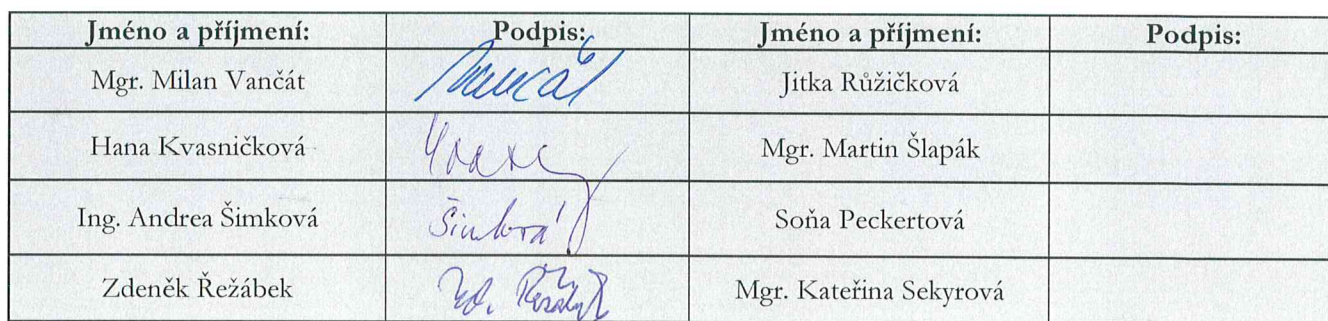 Jméno a příjmení: Podpis: Jméno a příjmení: Podpis:
Mgr. Milan Vančát Vančát Jitka Růžičková
Hana Kvasničková Mgr. Martin Šlapák
Ing. Andrea Šimková Šimková Soňa Peckertová
Zdeněk Řežábek Zd. Mgr. Kateřina Sekyrová